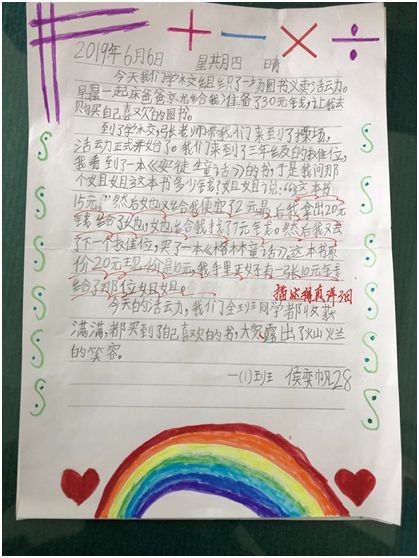 + − × ÷
2019年6月6日 星期四 晴
今天我们学校组织了一场图书义卖活动。
早晨一起床爸爸就给我准备了30元钱,让我去
购买自己喜欢的图书。
到了学校,张老师带我们来到了操场,
活动正式开始了。我们来到了三年级的摊位,
我看到了一本《安徒生童话》的书,于是我问那
个姐姐这本书多少钱?姐姐说:“这本书
15元。”然后她又给我便宜了2元最后我拿出20元
钱给了她,她给我找了7元钱。然后我又去
了下一个摊位,买了一本《格林童话》,这本书原
价20元现价是10元,我手里正好有一张10元钱
给了那位姐姐。 描述得真详细
今天的活动,我们全班同学都收获
满满,都买到了自己喜欢的书,大家露出了灿烂
的笑容。
一(1)班 侯奕帆28